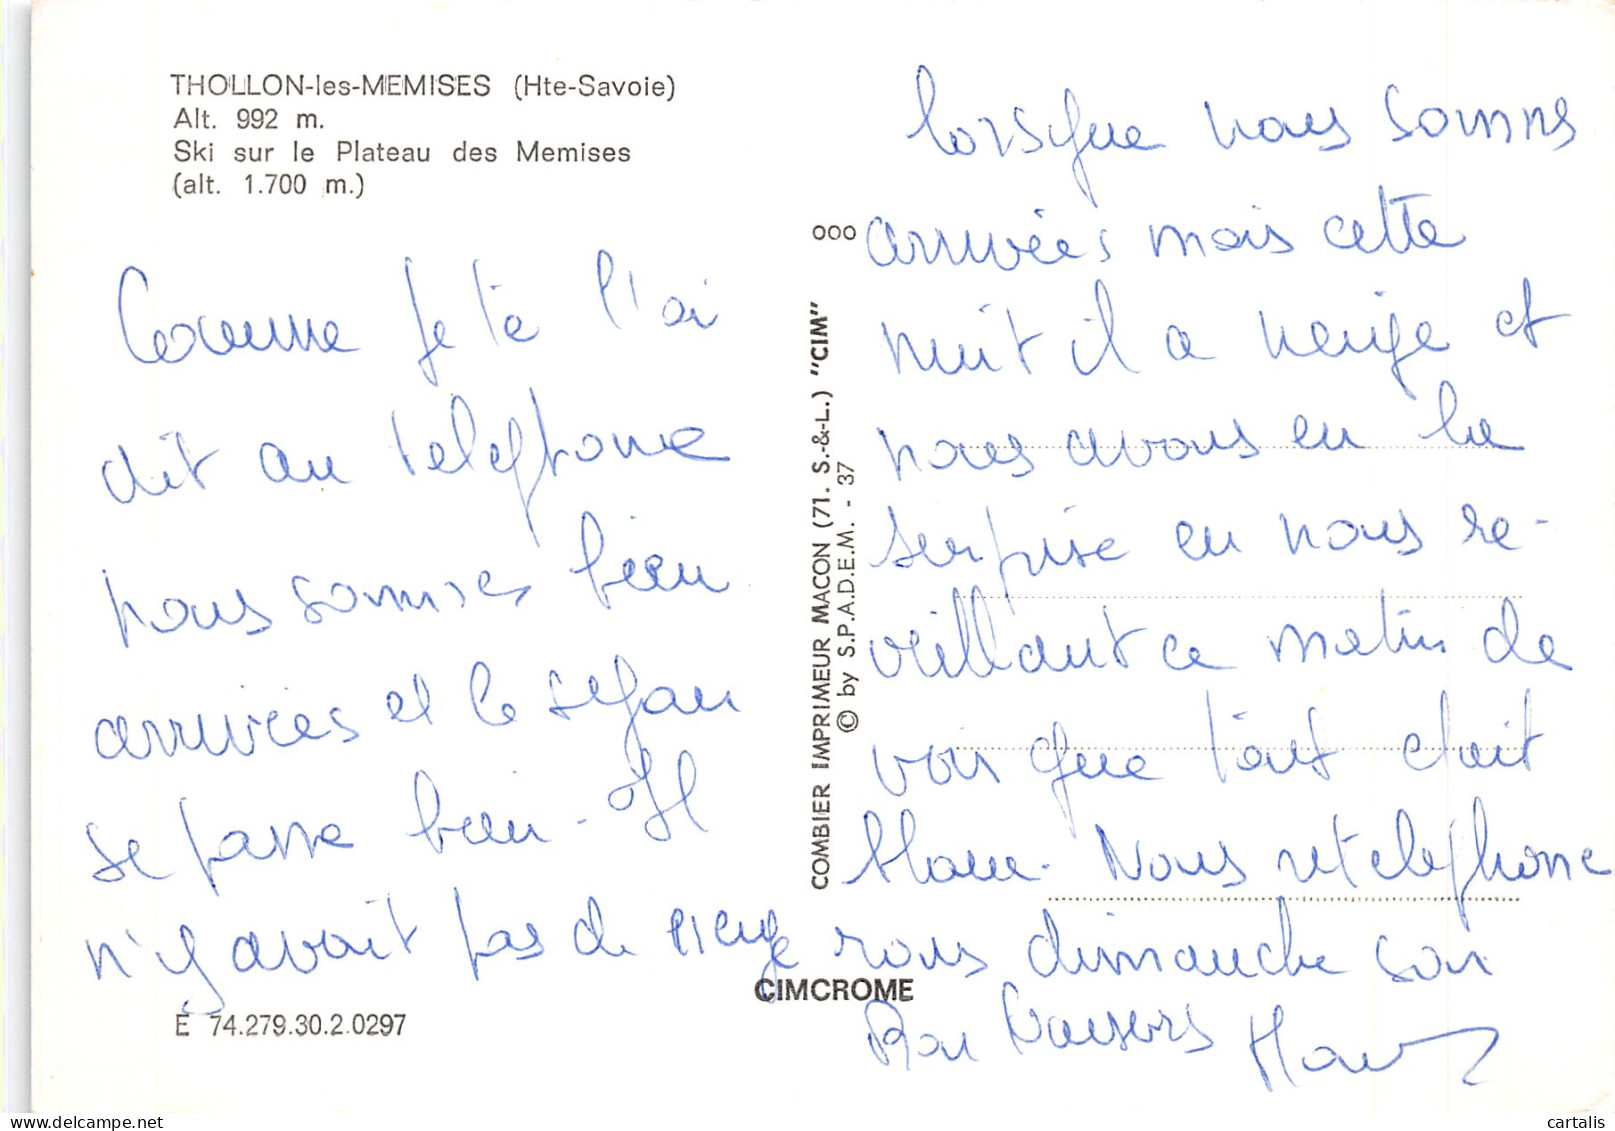 THOLLON-les-MEMISES (Hte-Savoie)
Alt. 992 m.
Ski sur le Plateau des Memises
(alt. 1.700 m.)
Comme je te l'ai
dit au telephone
nous sommes bien
arrivées et le sejour
se passe bien. Il
n'y avait pas de neige
E 74.279.30.2.0297
COMBIER IMPRIMEUR MACON (71. S.-&-L.) "CIM"
© by S.P.A.D.E.M. - 37
000
CIMCROME
lorsque nous sommes
arrivées mais cette
nuit il a neigé et
nous avons eu la
surprise en nous re-
veillant ce matin de
voir que tout etait
blanc. Nous retelephone
rons dimanche soir
Bons baisers
cartalis
delcampe.net